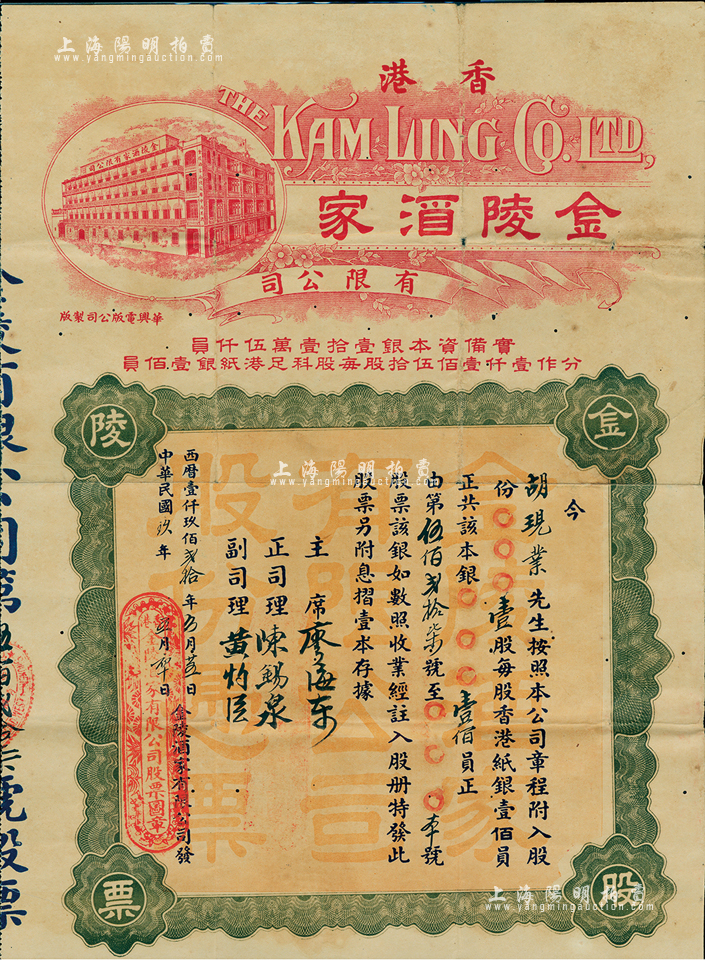 上海陽明拍賣
www.yangmingauction.com
香港
THE KAM LING CO. LTD,
金陵酒家
有限公司
金陵酒家有限公司
華興電版公司製版
實備資本銀壹拾壹萬伍仟員
分作壹仟壹佰伍拾股每股科足港紙銀壹佰員
金
陵
股
票
金陵酒家
有限公司
股份票
上海陽明拍賣
www.yangmingauction.com
今
胡現業先生按照本公司章程附入股
份〇〇〇壹股每股香港紙銀壹佰員
正共該本銀〇〇〇壹佰員正
由第伍佰弍拾柒號至〇〇〇本號
股票該銀如數照收業經註入股册特發此
股票另附息摺壹本存據
主席
正司理
副司理
西曆壹仟玖佰弍拾年五月五日
中華民國玖年
金陵酒家有限公司發
有限公司股票圖章
有限公司第伍佰弍拾柒號股票
上海陽明拍賣
www.yangmingauction.com